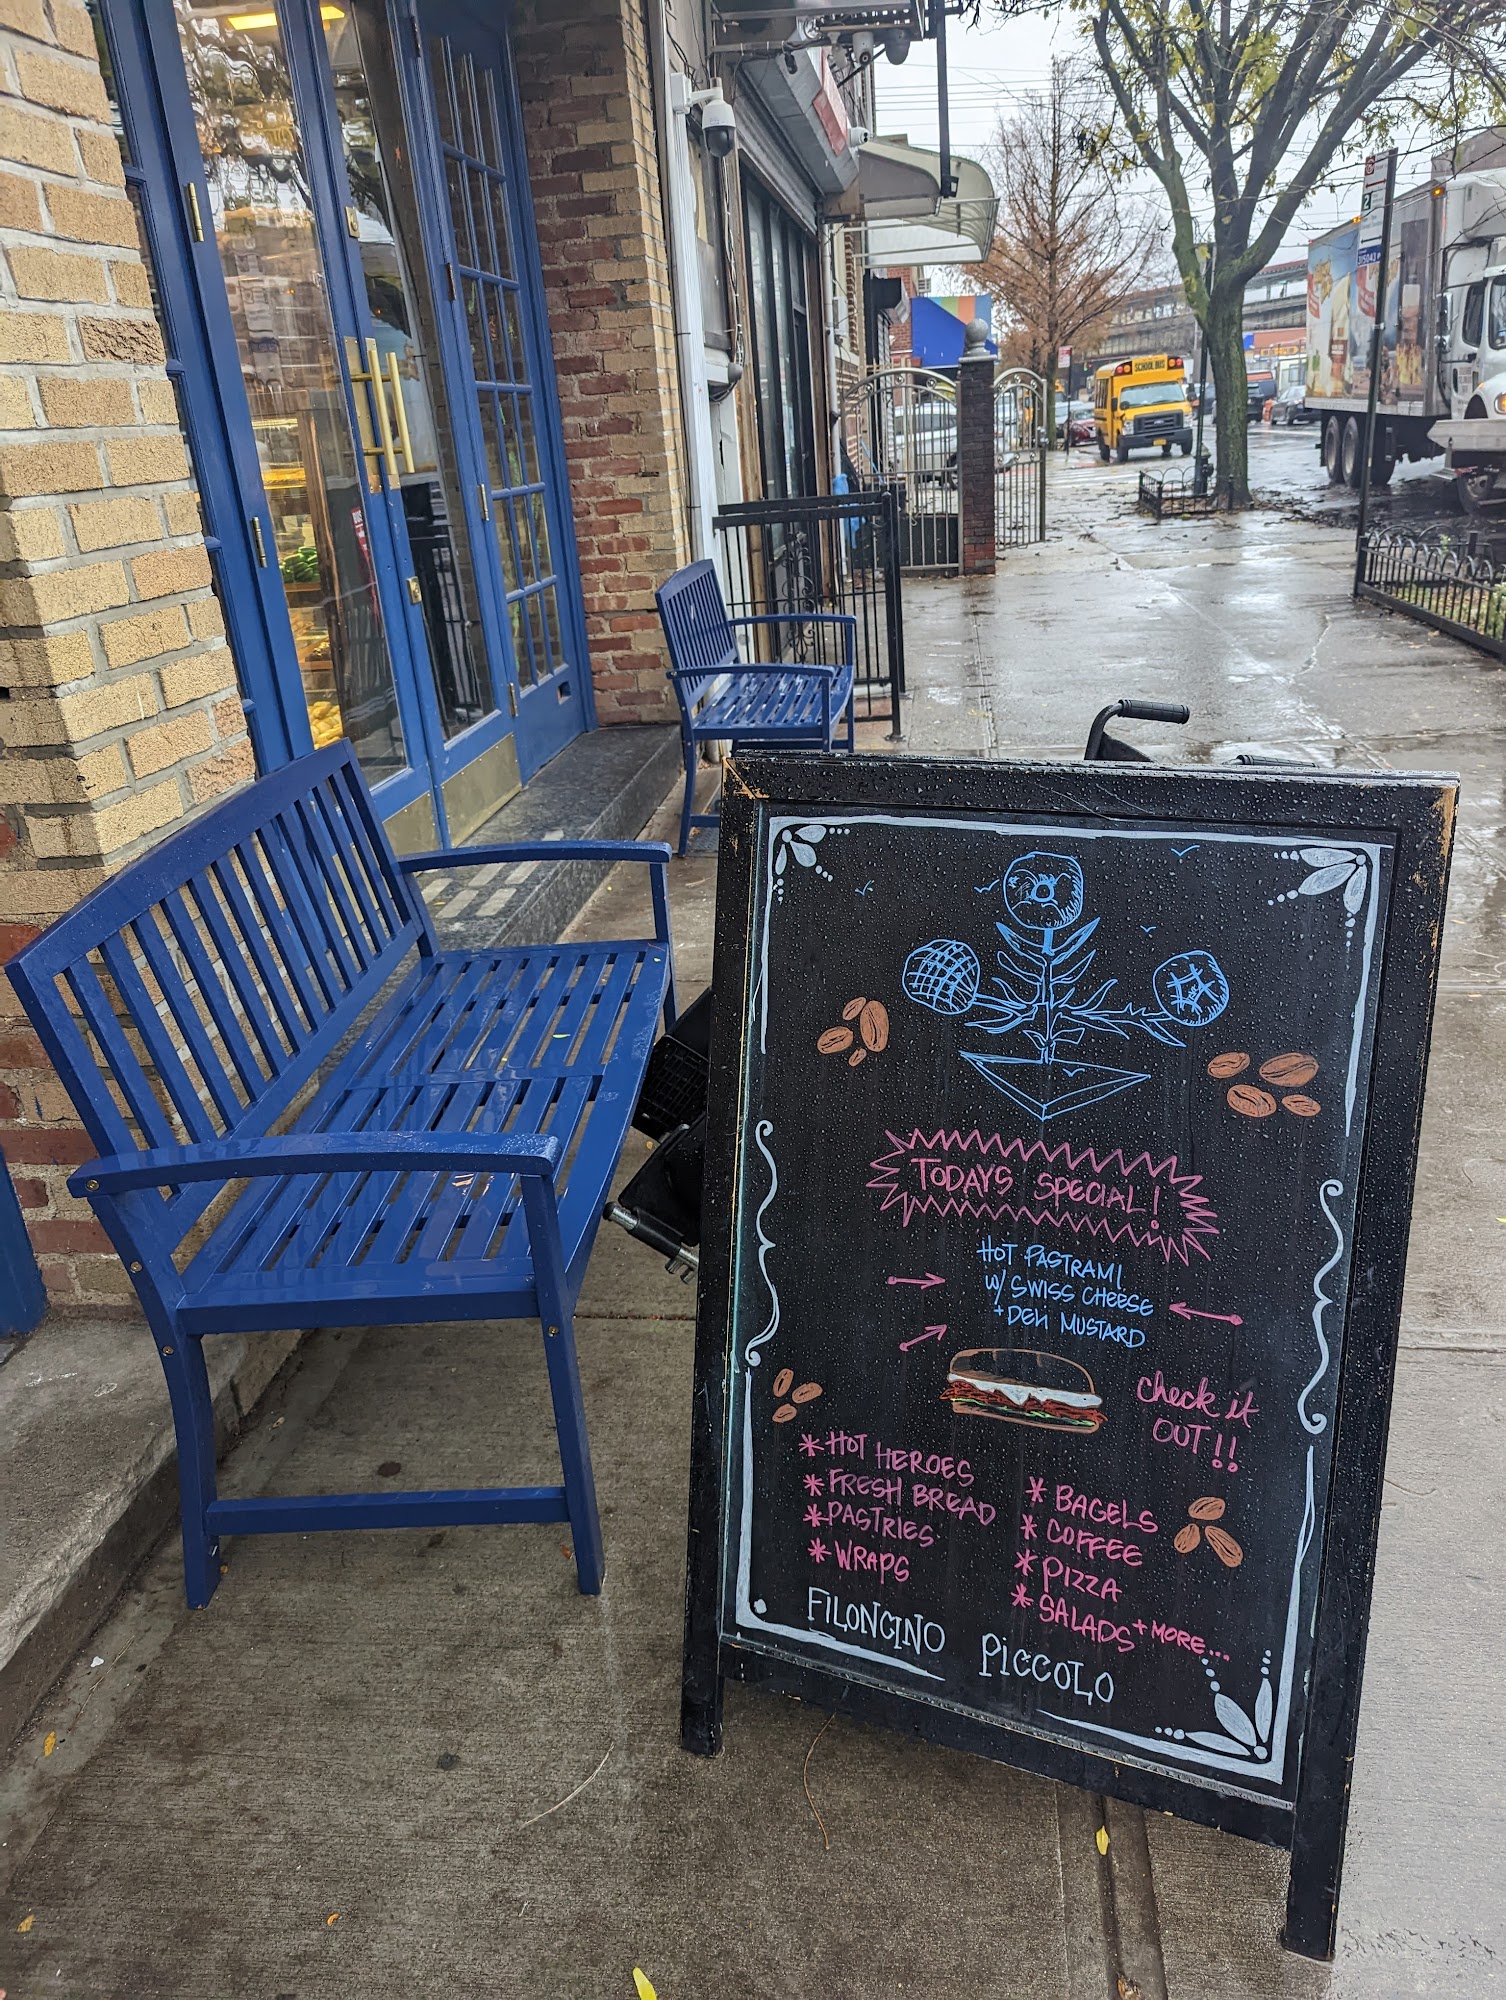 SCHOOL BUS
2
TODAYS SPECIAL!
HOT PASTRAMI
W/ SWISS CHEESE
+ DELI MUSTARD
check it
OUT!!
* HOT HEROES
* FRESH BREAD
* PASTRIES
* WRAPS
* BAGELS
* COFFEE
* PIZZA
* SALADS + MORE...
FILONCINO PICCOLO